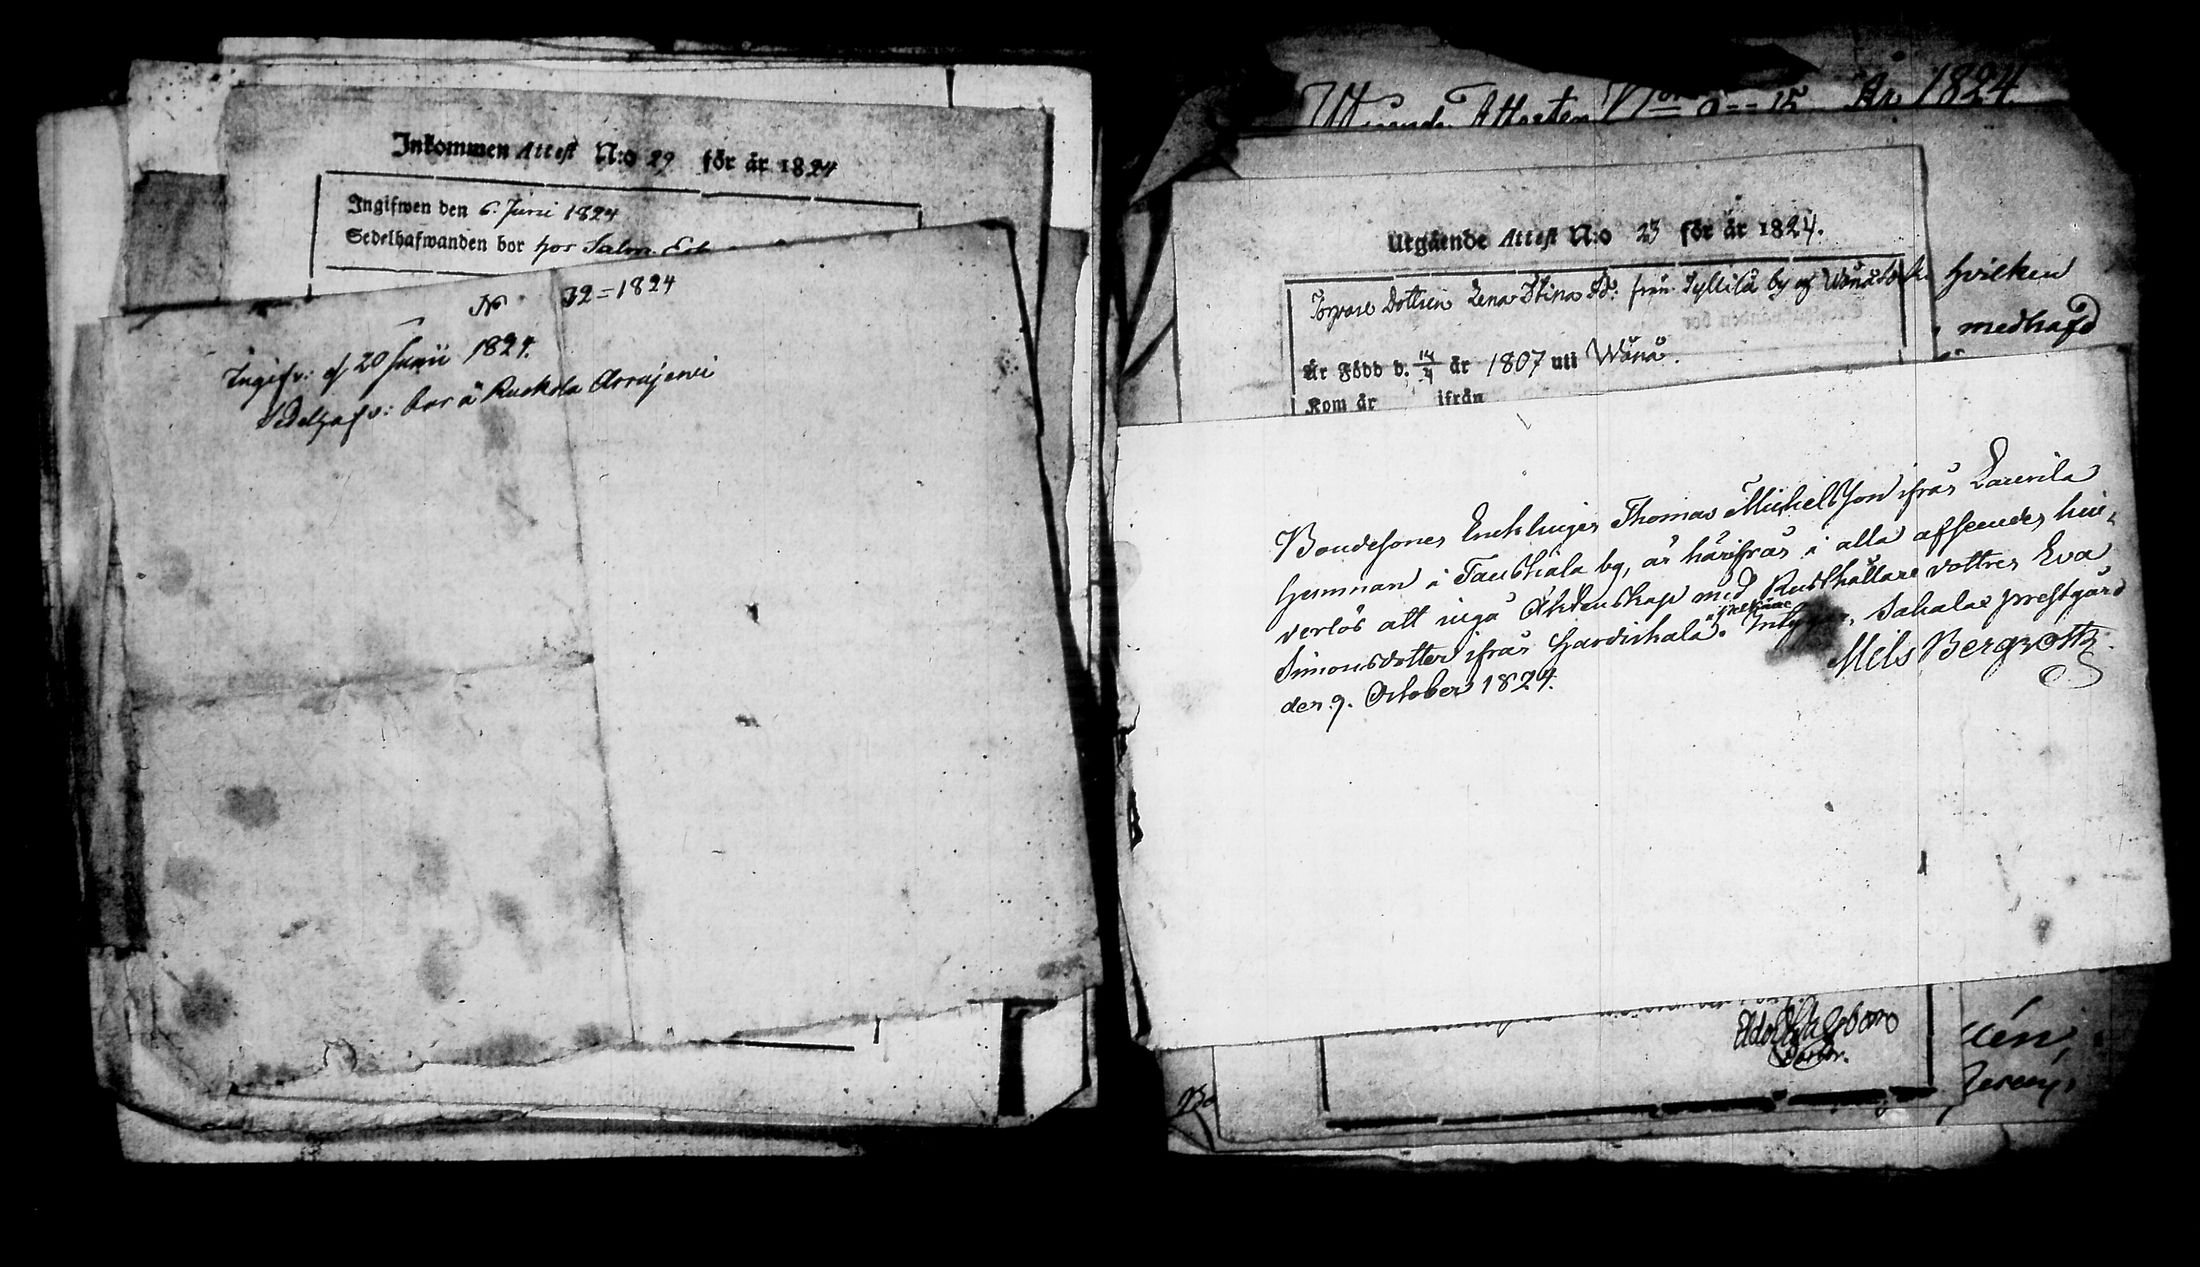 Inkommen Attest N:o 29 för år 1824
Ingifwen den 6. Juni 1824
Sedelhafwanden bor hos Salm. Er
No 32=1824
Ingifv: d 20 Junii 1824.
Sedelhafv: bor å Ruokola Arrajervi
Utgående Attester 15 År 1824
Utgående Attest N:o 23 för år 1824.
Torpare Dottren Lena Stina Ad: från Tyllilä by af Wånå
Är Född d. 14/4 år 1807 uti Wånå.
Kom år ifrån
hvilken
medhafd
Bondesonen Enklingen Thomas Michelsson ifrån Laurila
hemman i Tauskala by, är härifrån i alla afseenden hin-
derlös att ingå Äktenskap med Rusthållare dottren Eva
Simonsdotter ifrån Hardikala. Intygar, Sahalax prestgård
den 9. October 1824.
Nils Bergroth